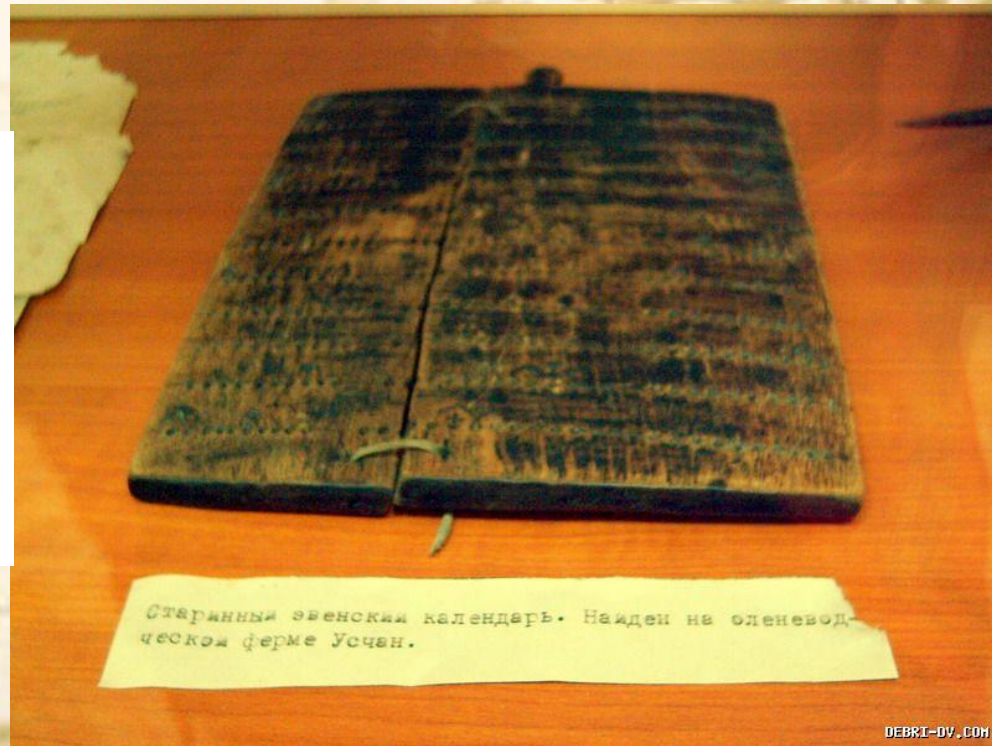 Старинный эвенский календарь. Найден на оленевод-
ческой ферме Усчан.
DEBRI-DV.COM